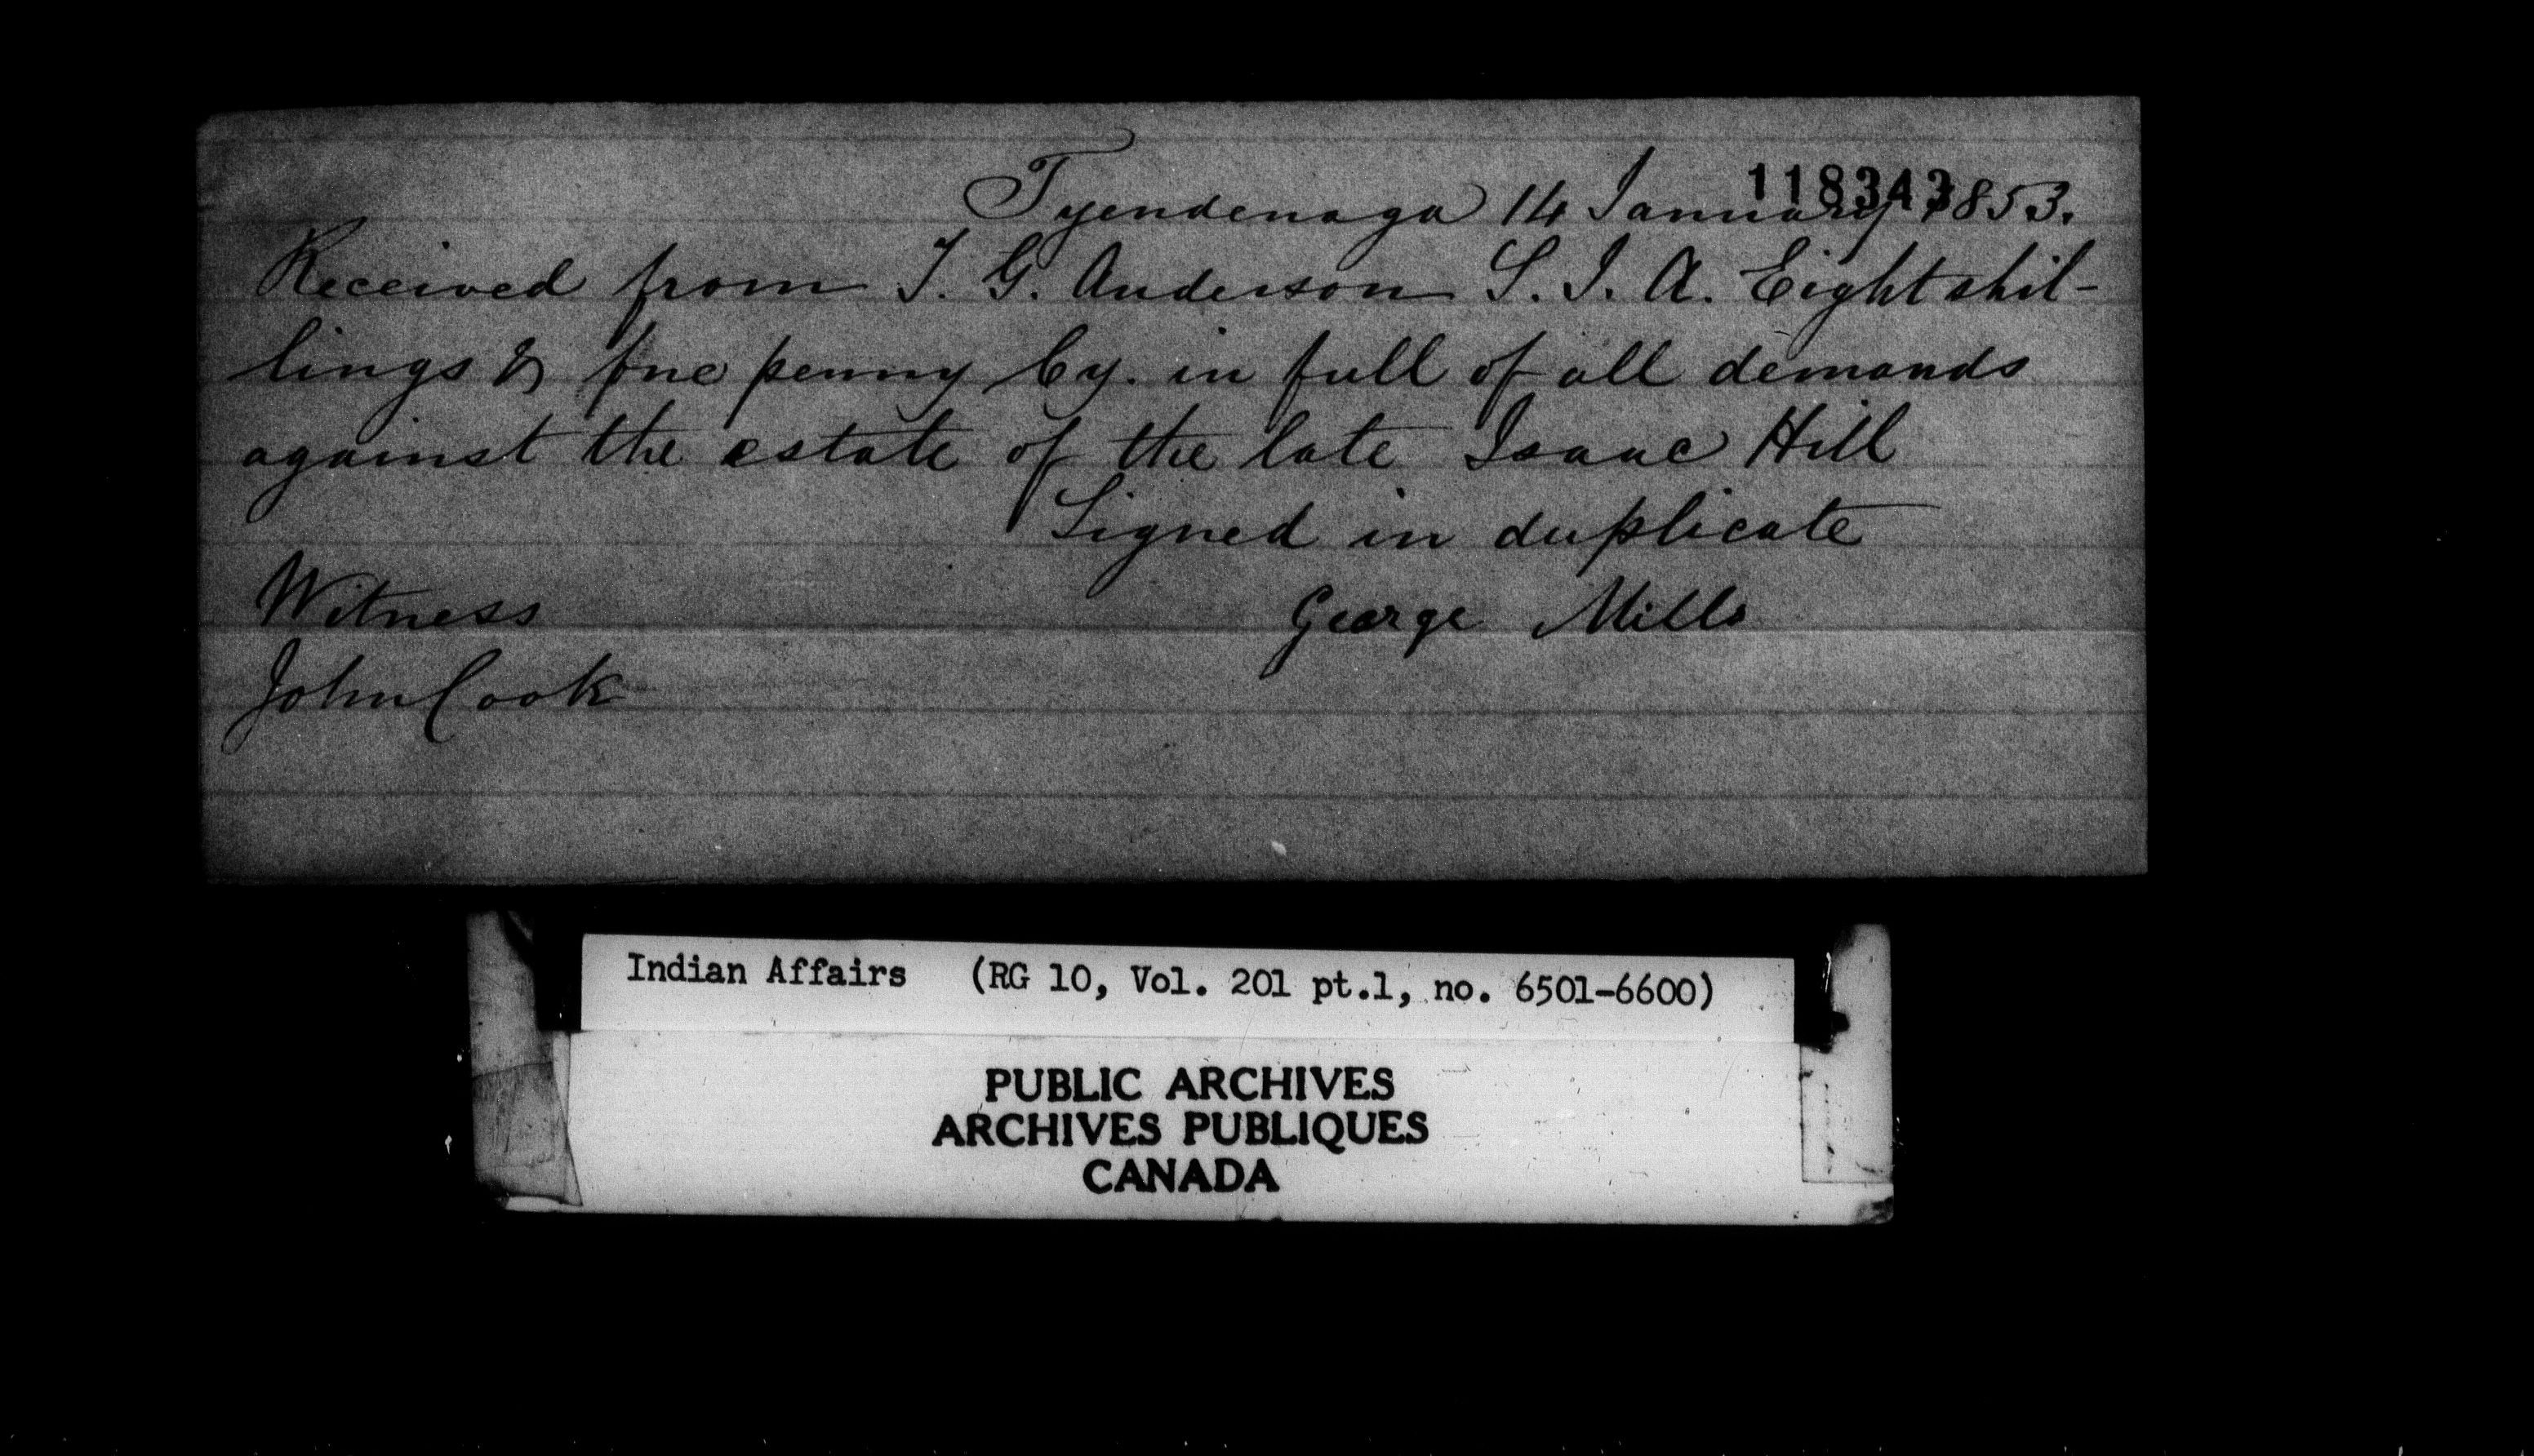 118343
Tyendenaga 14 January 1853.
Received from T. G. Anderson S. I. A. Eight shil-
lings & one penny Cy. in full of all demands
against the estate of the late Isaac Hill
Signed in duplicate
Witness George Mills
John Cook
Indian Affairs (RG 10, Vol. 201 pt.1, no. 6501-6600)
PUBLIC ARCHIVES
ARCHIVES PUBLIQUES
CANADA